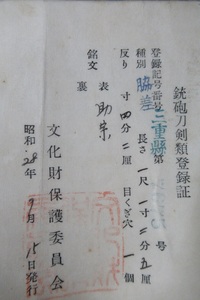 銃砲刀剣類登録証
登録記号番号 三重縣第 号
種別 脇差 長さ 一尺一寸二分五厘
反り 寸四分二厘 目くぎ穴 一個
銘文 表 助宗
裏
文化財保護委員会
昭和28年 月15日発行